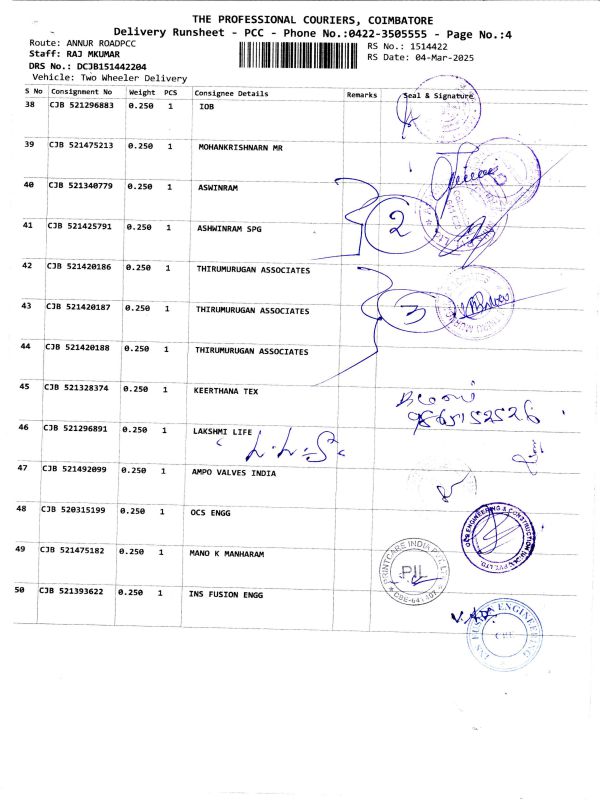 THE PROFESSIONAL COURIERS, COIMBATORE
Delivery Runsheet - PCC - Phone No.:0422-3505555 - Page No.:4
Route: ANNUR ROADPCC
RS No.: 1514422
Staff: RAJ MKUMAR
RS Date: 04-Mar-2025
DRS No.: DCJB151442204
Vehicle: Two Wheeler Delivery
S No Consignment No Weight PCS Consignee Details Remarks Seal & Signature
38 CJB 521296883 0.250 1 IOB
39 CJB 521475213 0.250 1 MOHANKRISHNARN MR
40 CJB 521340779 0.250 1 ASWINRAM
2
41 CJB 521425791 0.250 1 ASHWINRAM SPG
42 CJB 521420186 0.250 1 THIRUMURUGAN ASSOCIATES
3
43 CJB 521420187 0.250 1 THIRUMURUGAN ASSOCIATES
44 CJB 521420188 0.250 1 THIRUMURUGAN ASSOCIATES
45 CJB 521328374 0.250 1 KEERTHANA TEX
46 CJB 521296891 0.250 1 LAKSHMI LIFE
47 CJB 521492099 0.250 1 AMPO VALVES INDIA
48 CJB 520315199 0.250 1 OCS ENGG
OCS ENGINEERING & CONSTRUCTION INDIA PVT LTD
49 CJB 521475182 0.250 1 MANO K MANHARAM
PRINTCARE INDIA PVT LTD
PII
CBE-641 107
50 CJB 521393622 0.250 1 INS FUSION ENGG
INS FUSION ENGINEERING
CBE